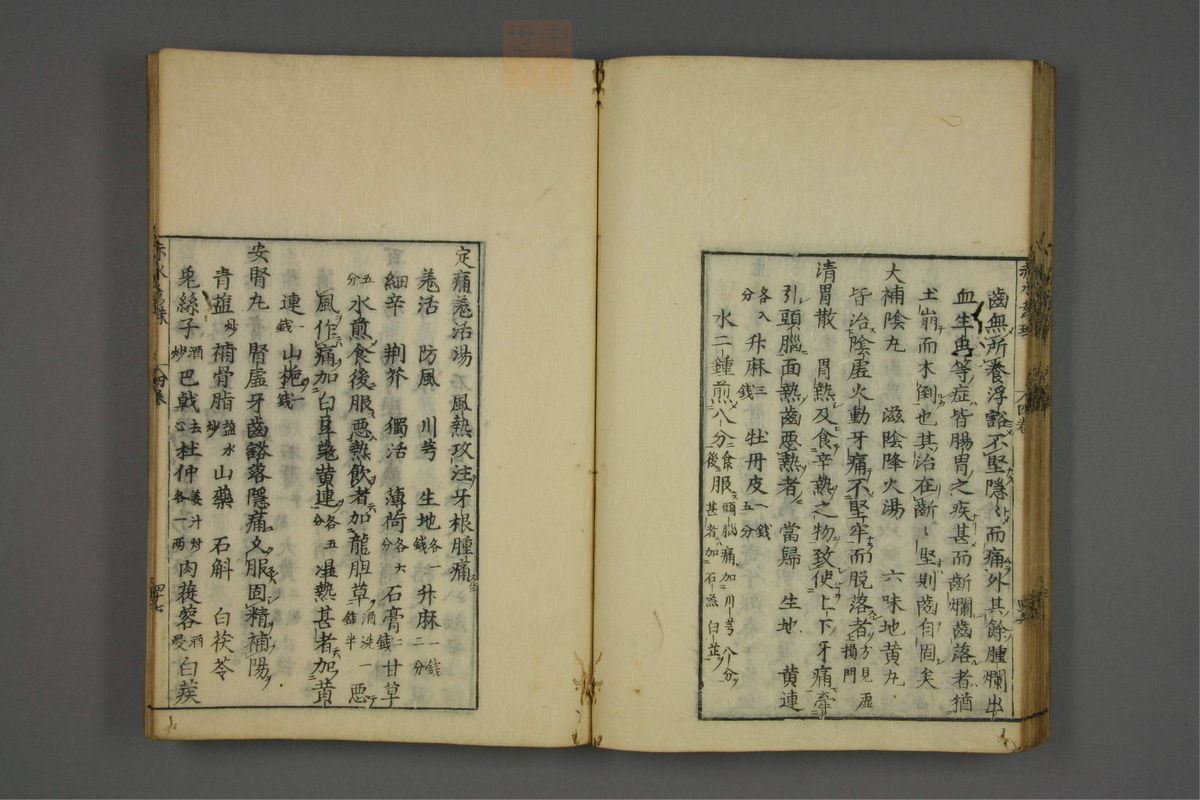 齒無所養浮豁不堅隱〻而痛外其餘腫爛出
血生等症皆腸胃之疾甚而齗爛齒落者猶
土崩而木倒也其治在齗〻堅則齒自固矣
大補陰丸　滋陰降火湯　六味地黄丸
皆治陰虛火動牙痛不堅牢而脱落者方見虛損門
清胃散　胃熱及食辛熱之物致使上下牙痛牽
引頭腦面熱齒惡熱者　當歸　生地　黄連
各八分　升麻三錢　牡丹皮一錢五分
水二鍾煎八分食後服頭腦痛加川芎八分甚者加石羔白芷
定痛羗活湯　風熱攻注牙根腫痛
羗活　防風　川芎　生地各一錢　升麻一錢二分
細辛　荆芥　獨活　薄荷各六分　石膏二錢　甘草
五分　水煎食後服惡熱飲者加龍胆草酒洗一錢半　惡
風作痛加白豆蔲黄連各五分　濕熱甚者加黄
連一錢　山梔一錢
安腎丸　腎虛牙齒豁落隱痛久服固精補陽
青鹽炒　補骨脂鹽水炒　山藥　石斛　白茯苓
兎絲子酒炒　巴戟去心　杜仲姜汁炒各一兩　肉蓯蓉酒浸　白蒺